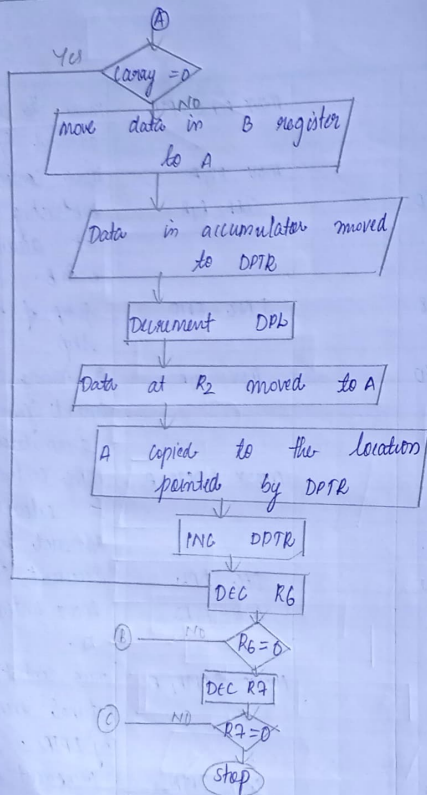 A
Yes
Caray =0
NO
move data in B register
to A
Data in accumulator moved
to DPTR
Decrement DPL
Data at R2 moved to A
A copied to the location
pointed by DPTR
INC DPTR
DEC R6
B NO R6=0
DEC R7
C NO R7=0
stop